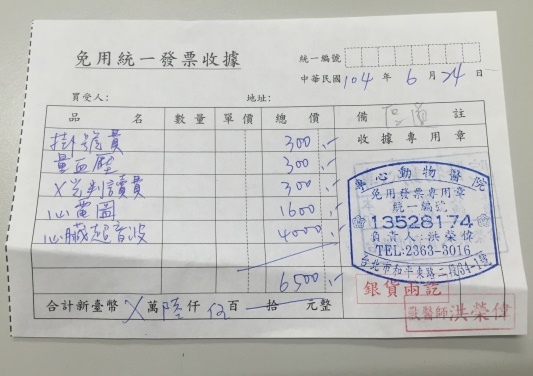 免用統一發票收據
統一編號
中華民國104年6月24日
買受人：
地址：
品名 數量 單價 總價 備註
掛號費 300.-
量血壓 300.-
X光判讀費 300.-
心電圖 1600.-
心臟超音波 4000.-
6500.-
合計新臺幣X萬陸仟伍百拾元整
收據專用章
專心動物醫院
免用發票專用章
統一編號
13528174
負責人:洪榮偉
TEL:2363-3016
台北市和平東路二段34-1號
銀貨兩訖
獸醫師洪榮偉